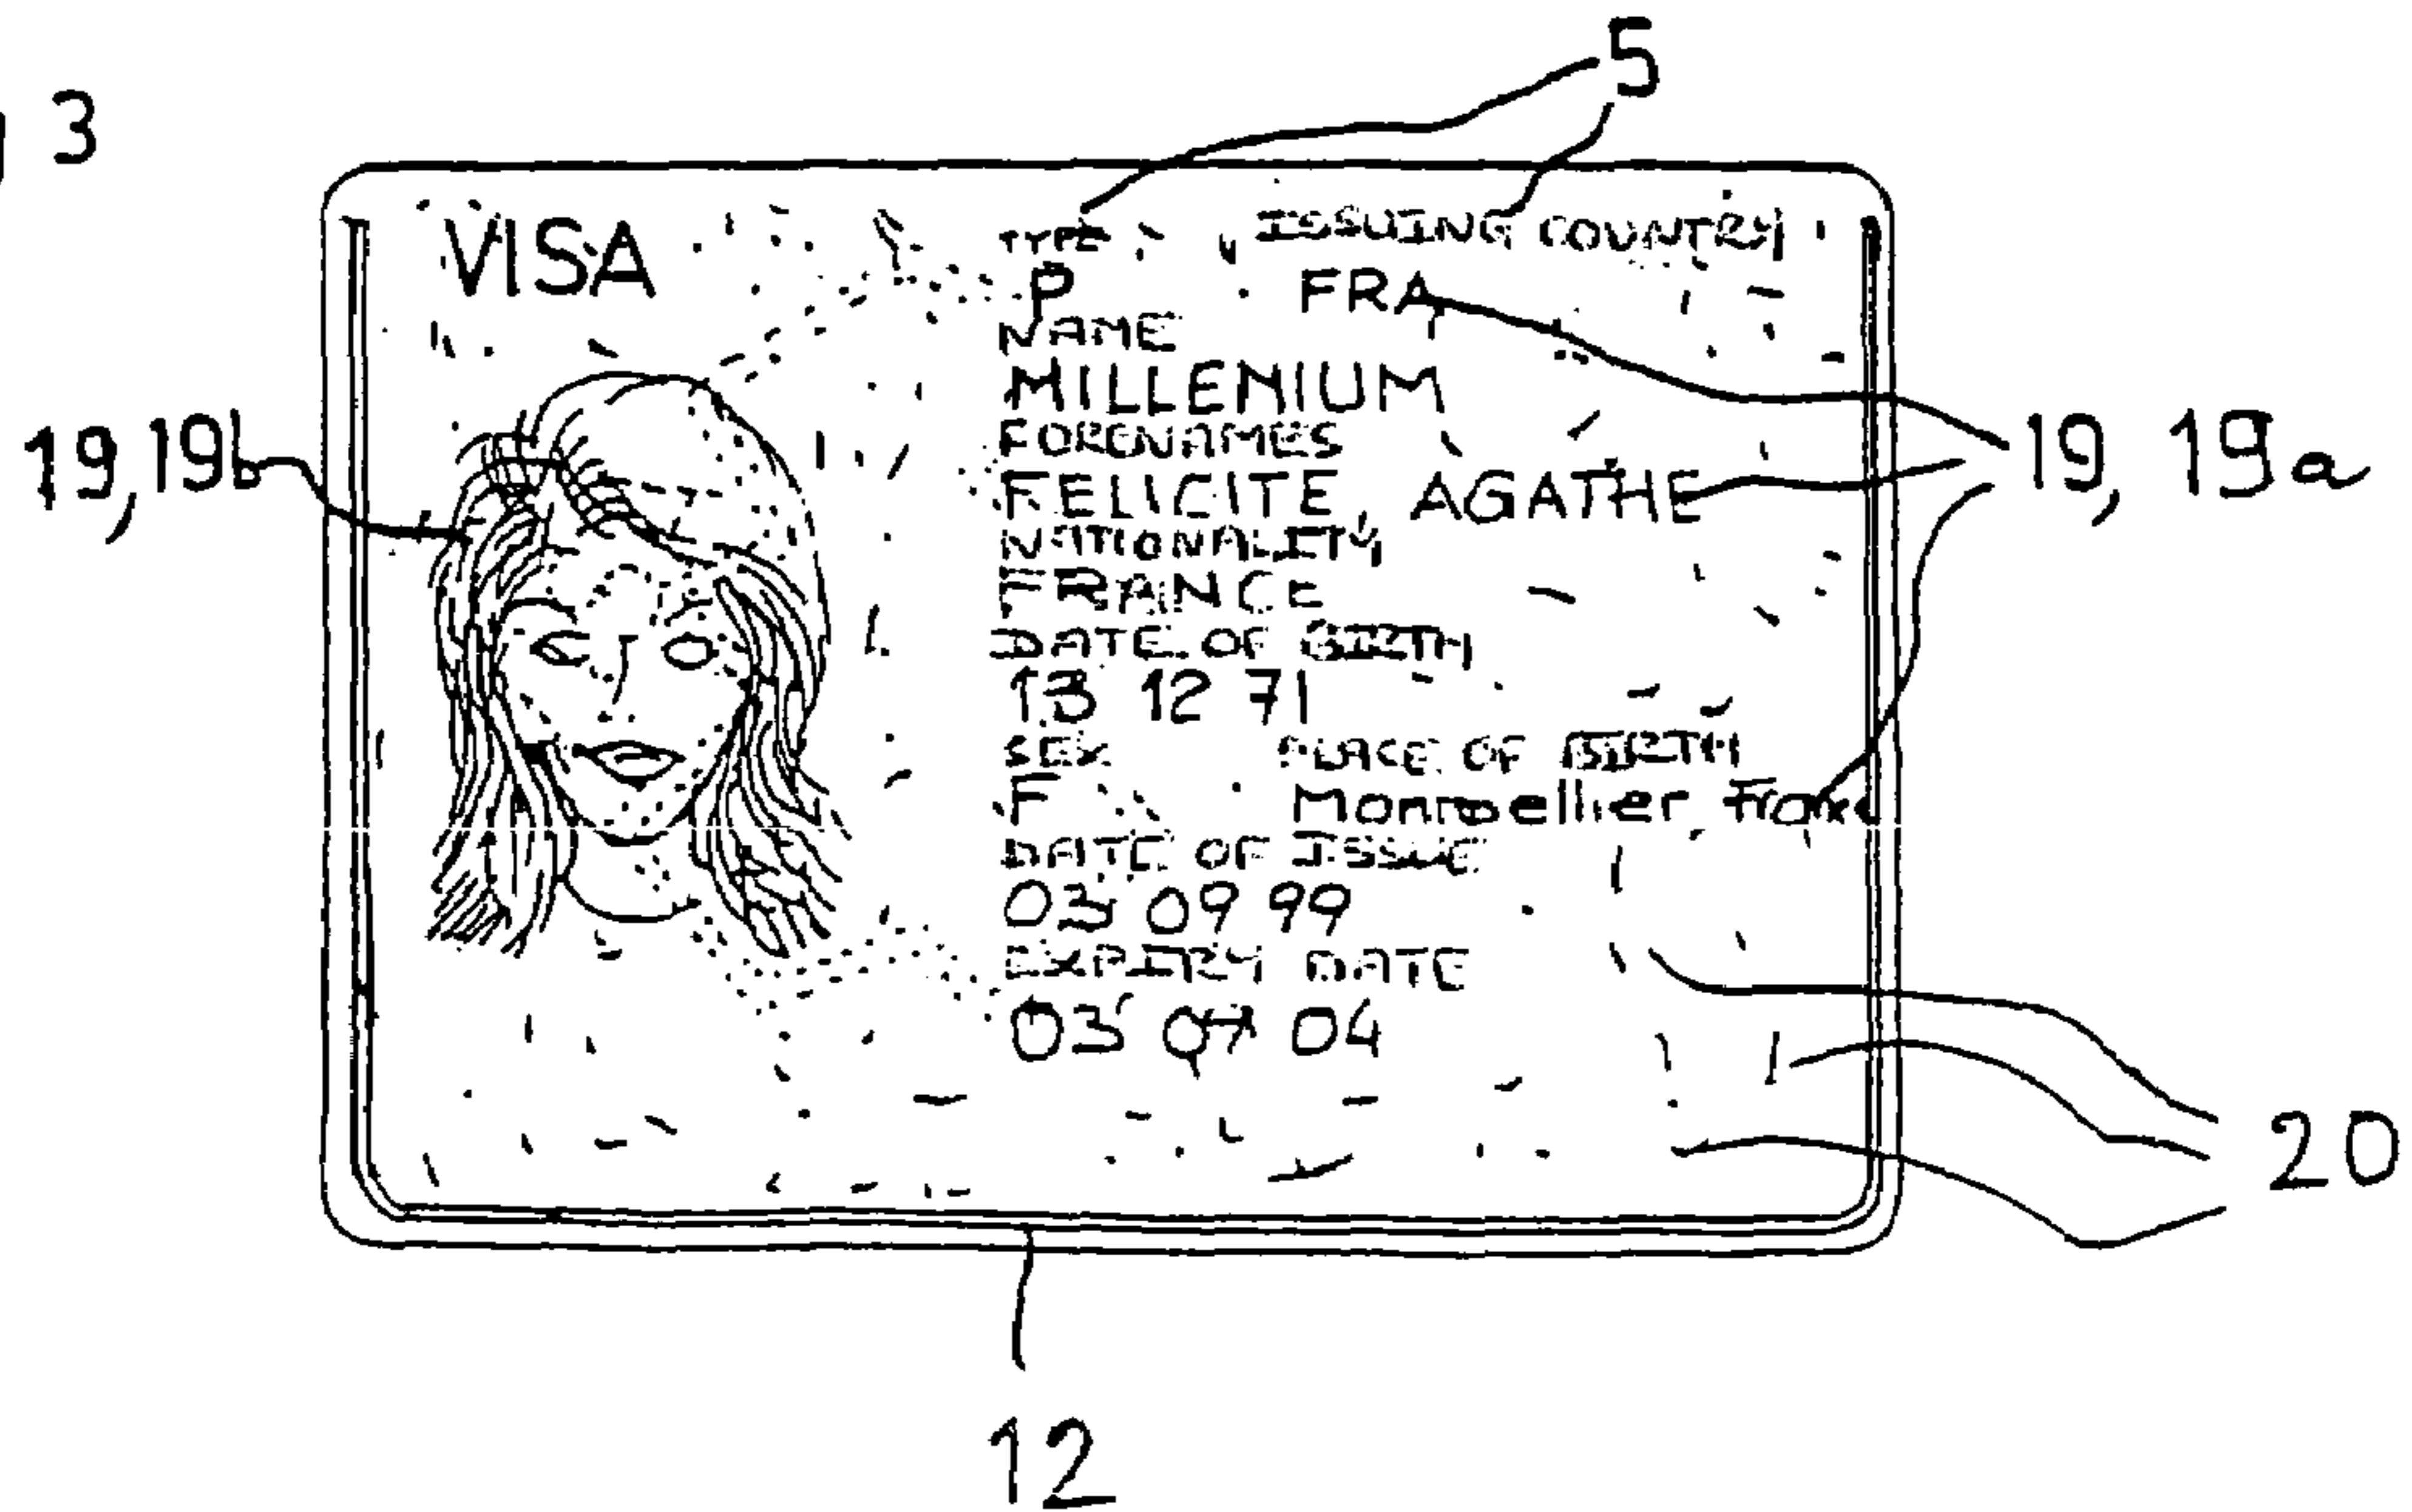 3
5
VISA
TYPE ISSUING COUNTRY
P FRA
NAME
MILLENIUM
FORENAMES
19, 19a
19,19b
FELICITE, AGATHE
NATIONALITY
FRANCE
DATE OF BIRTH
13 12 71
SEX PLACE OF BIRTH
F Montpellier, France
DATE OF ISSUE
03 09 99
EXPIRY DATE
03 04
20
12